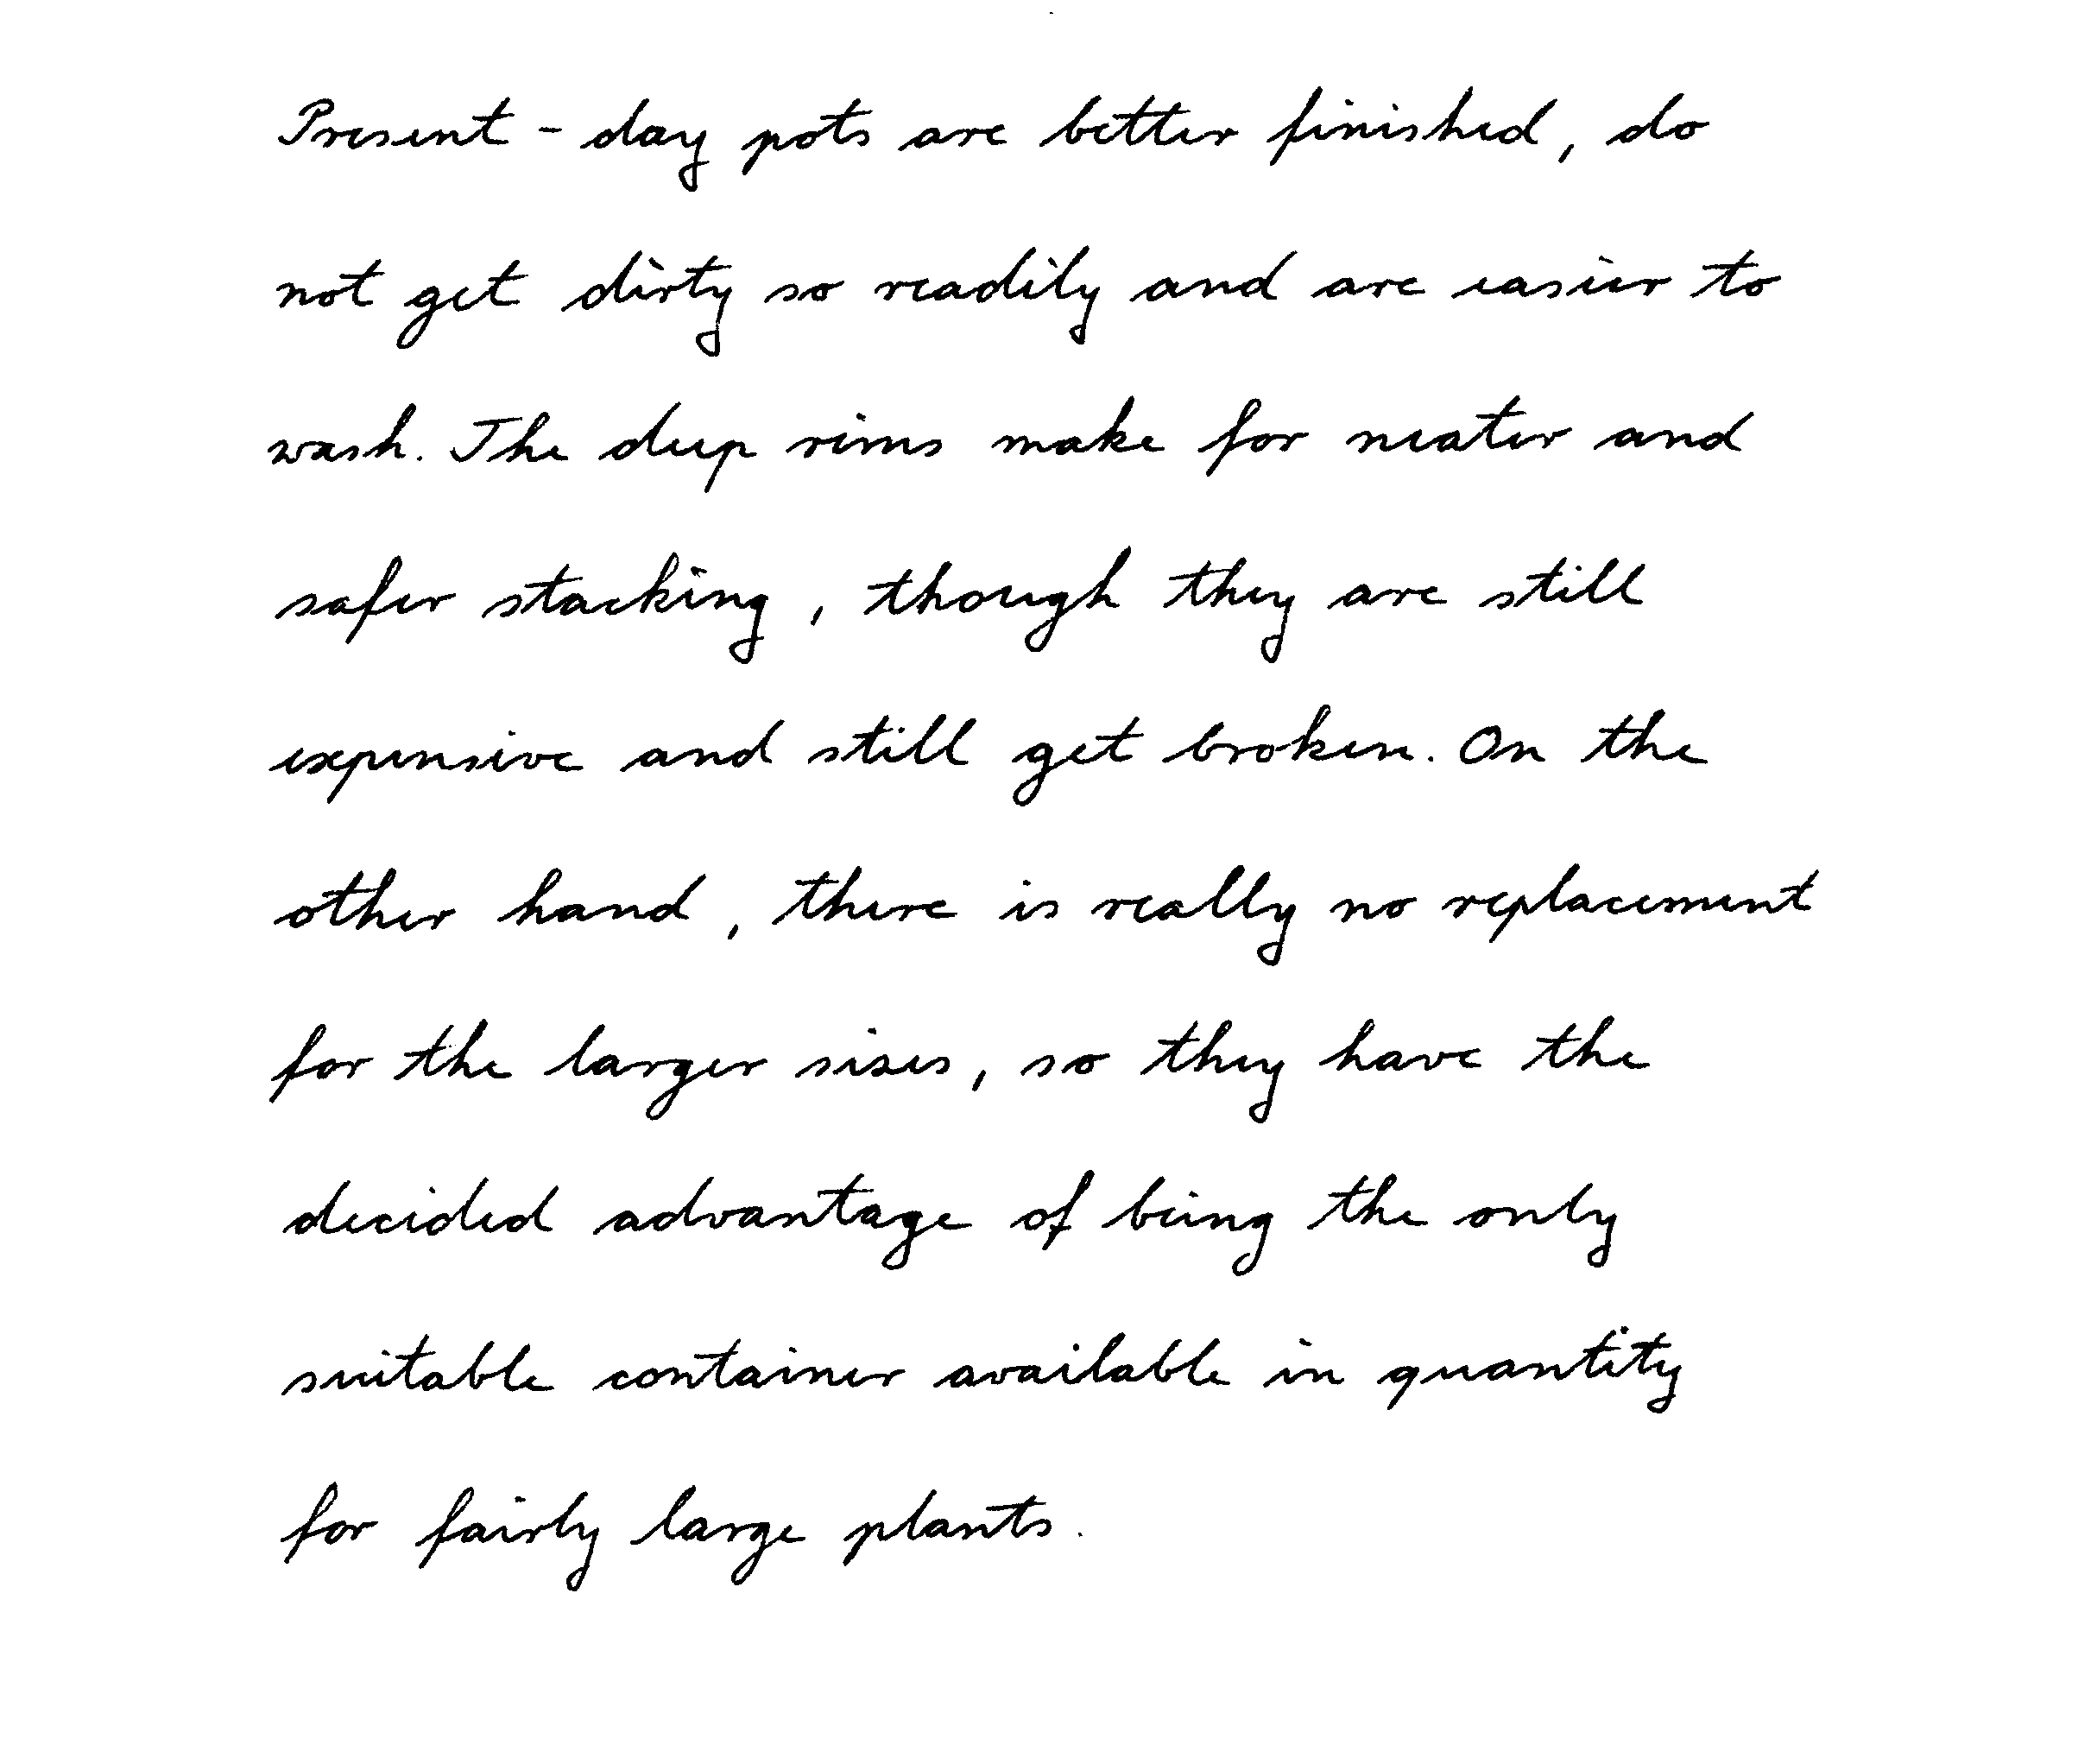 Present-day pots are better finished, do
not get dirty so readily and are easier to
wash. The deep rims make for neater and
safer stacking, though they are still
expensive and still get broken. On the
other hand, there is really no replacement
for the larger sizes, so they have the
decided advantage of being the only
suitable container available in quantity
for fairly large plants.